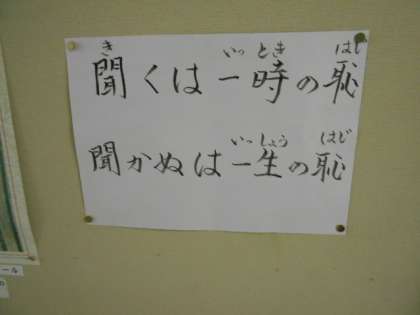 き いっ とき はじ
聞くは一時の恥
いっしょう はじ
聞かぬは一生の恥
ール